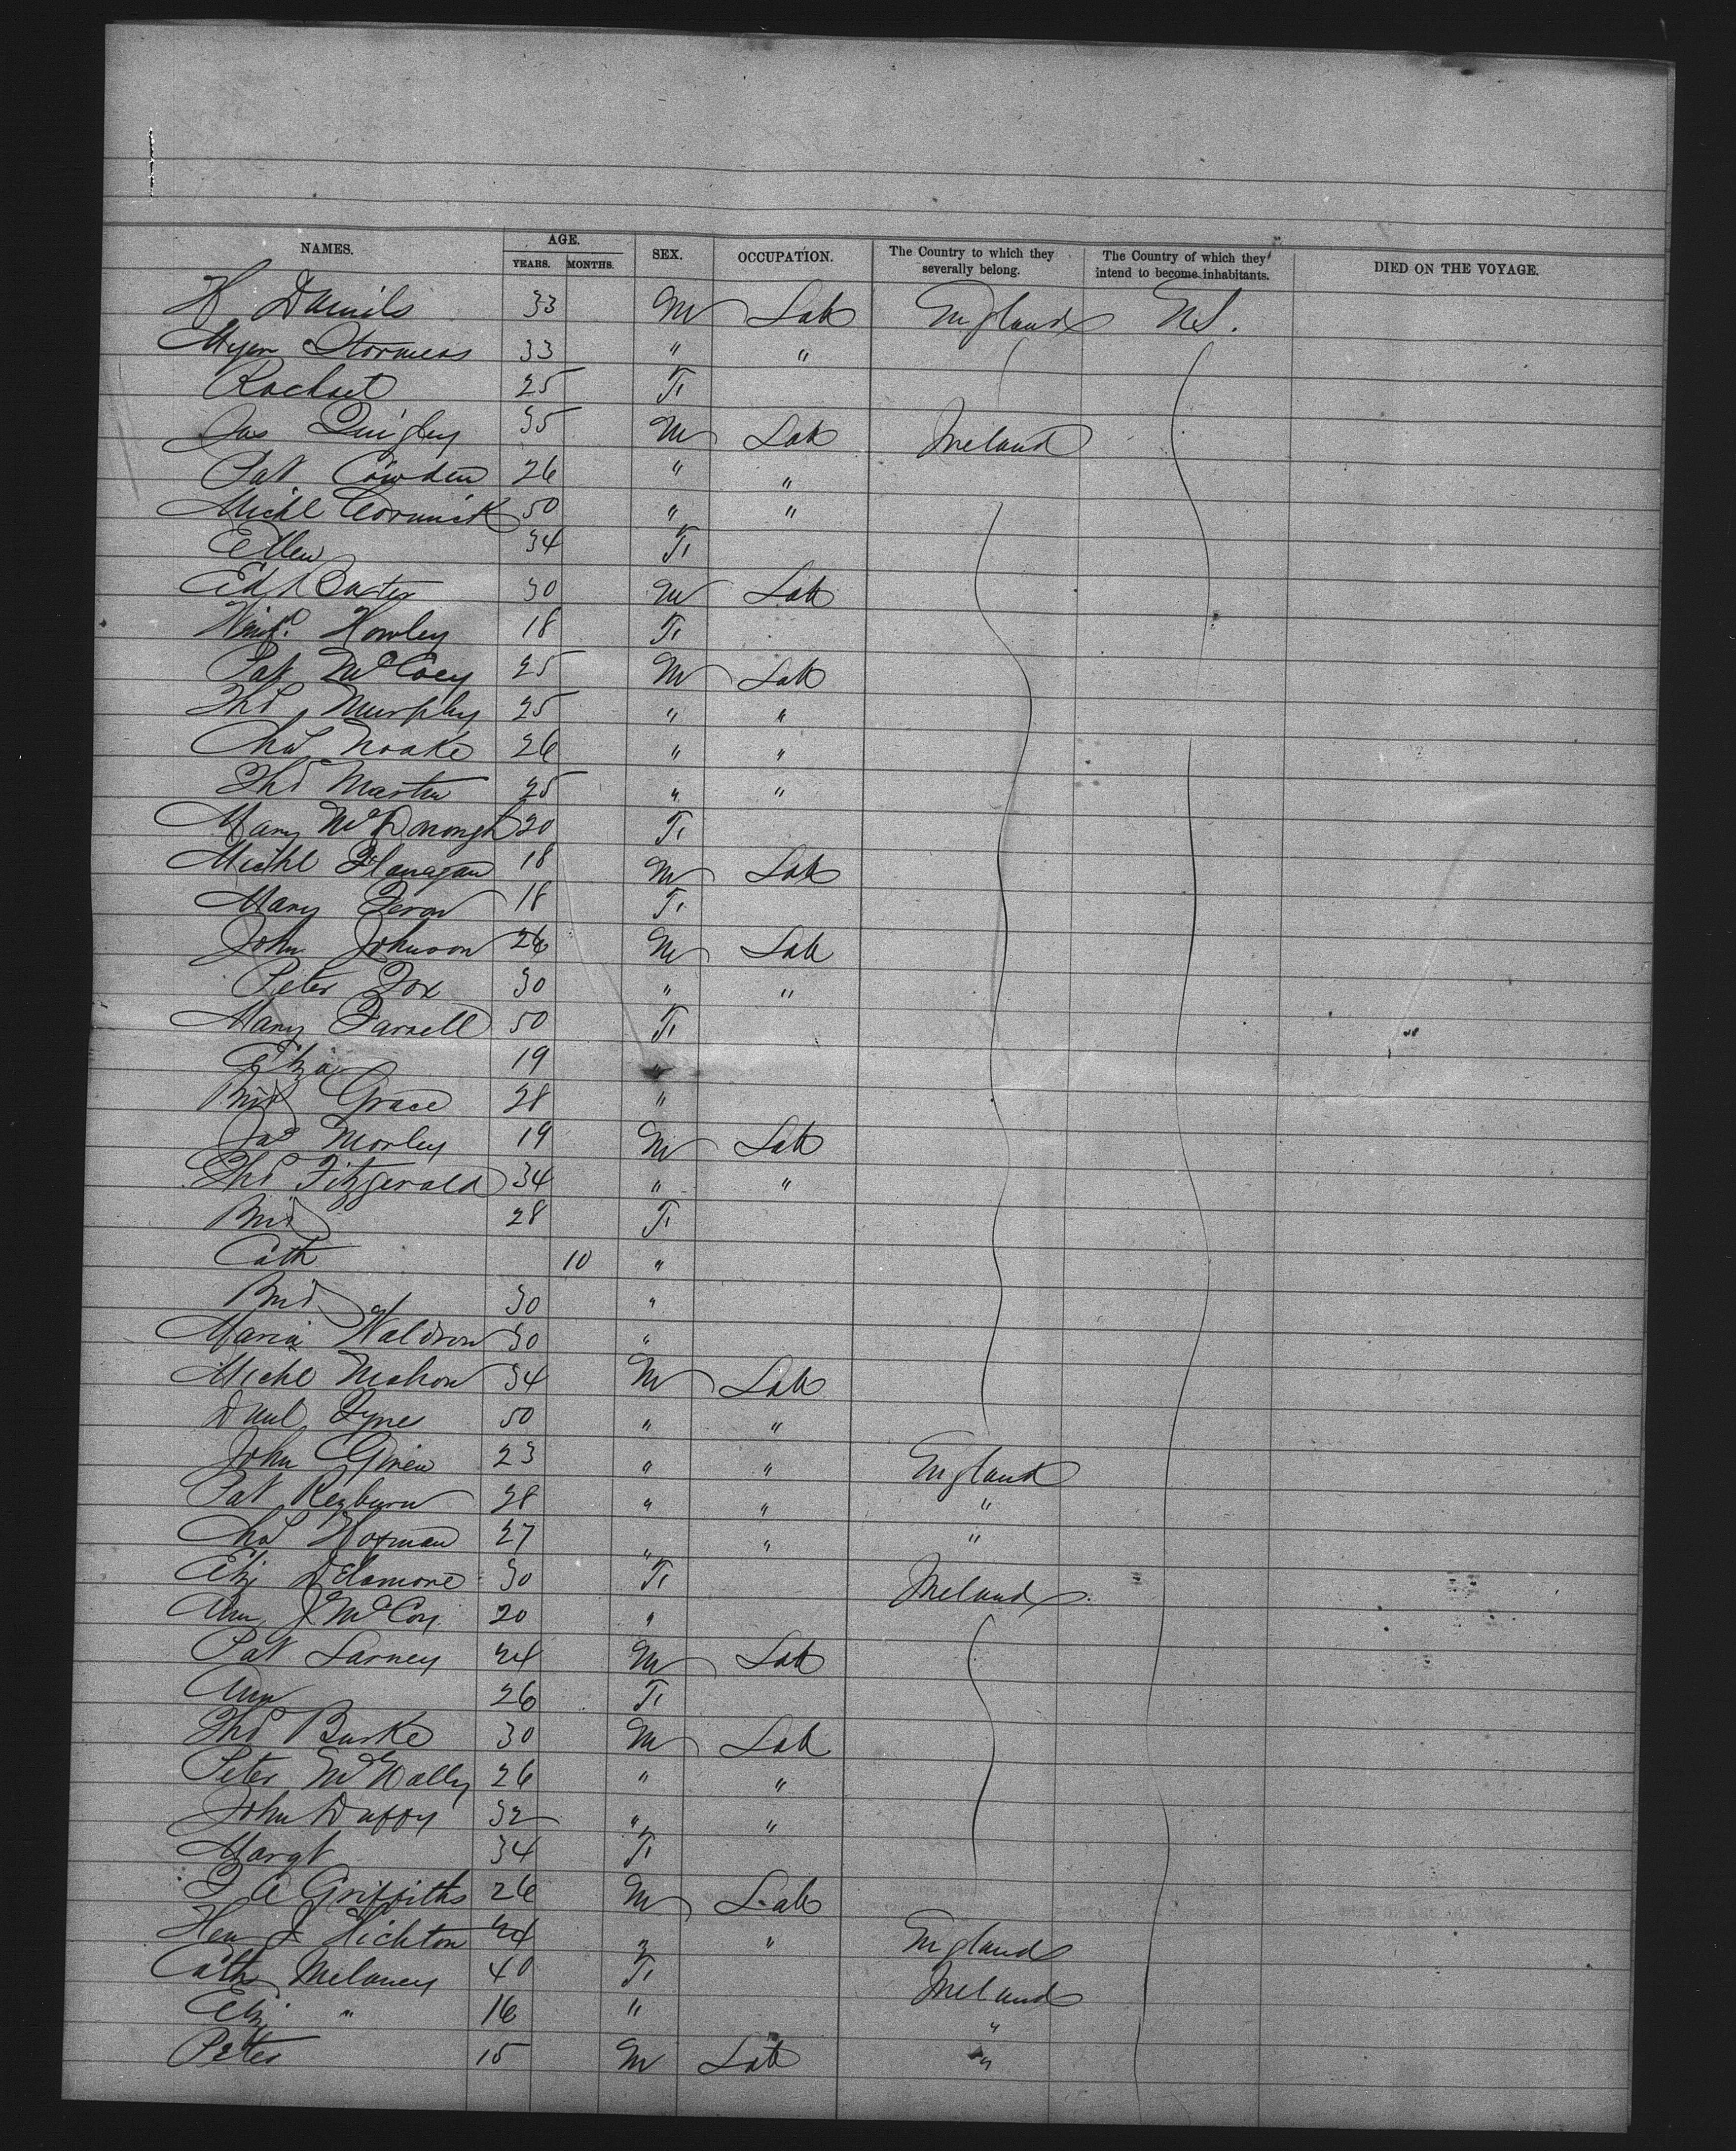 NAMES. AGE. YEARS. MONTHS. SEX. OCCUPATION. The Country to which they severally belong. The Country of which they intend to become inhabitants. DIED ON THE VOYAGE.
H Daniels 33 M Lab England U.S.
Myer 33 " "
Rachael 25 F
Jas Quigley 35 M Lab Ireland
Pat Cowden 26 " "
Michl Cormick 50 " "
Ellen 34 F
Edd Baxter 30 M Lab
Winfd. Howley 18 F
Pat McCoey 25 M Lab
Thos Murphy 25 " "
Chas Noake 26 " "
Thos Martin 25 " "
Mary McDonough 20 F
Michl Flanagan 18 M Lab
Mary 18 F
John Johnson 26 M Lab
Peter Fox 30 " "
Mary Farrell 50 F
Eliza 19 "
Brid Grace 28 "
Jas Morley 19 M Lab
Thos Fitzgerald 34 " "
Brid 28 F
Cath 10 "
Brid 30 "
Maria Waldron 30 "
Michl Mahon 34 M Lab
Danl Lyne 50 " "
John 23 " " England
Pat Reyburn 28 " " "
Chas 27 " " "
Eliz Delamore 30 F Ireland
Ann J McCoy 20 "
Pat Larney 24 M Lab
Ann 26 F
Thos Burke 30 M Lab
Peter McNally 26 " "
John Duffy 32 " "
Margt 34 F
F A Griffiths 26 M Lab
Hen J Hickton 24 " " England
Cath Melaney 40 F Ireland
Eliz " 16 " "
Peter 15 M Lab "